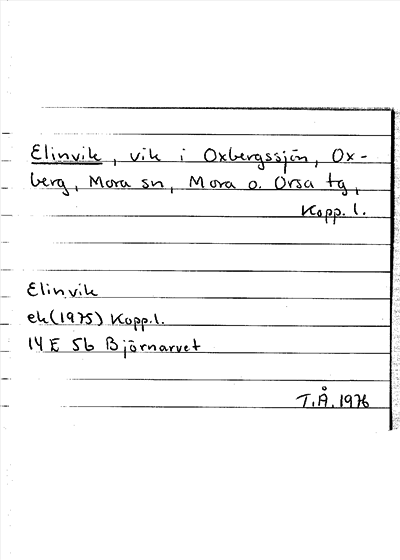 Elinvik, vik i Oxbergssjön, Ox-
berg, Mora sn, Mora o. Orsa tg,
Kopp. l.
Elinvik
ek (1975) Kopp. l.
14 E 5b Björnarvet
T.Å. 1976